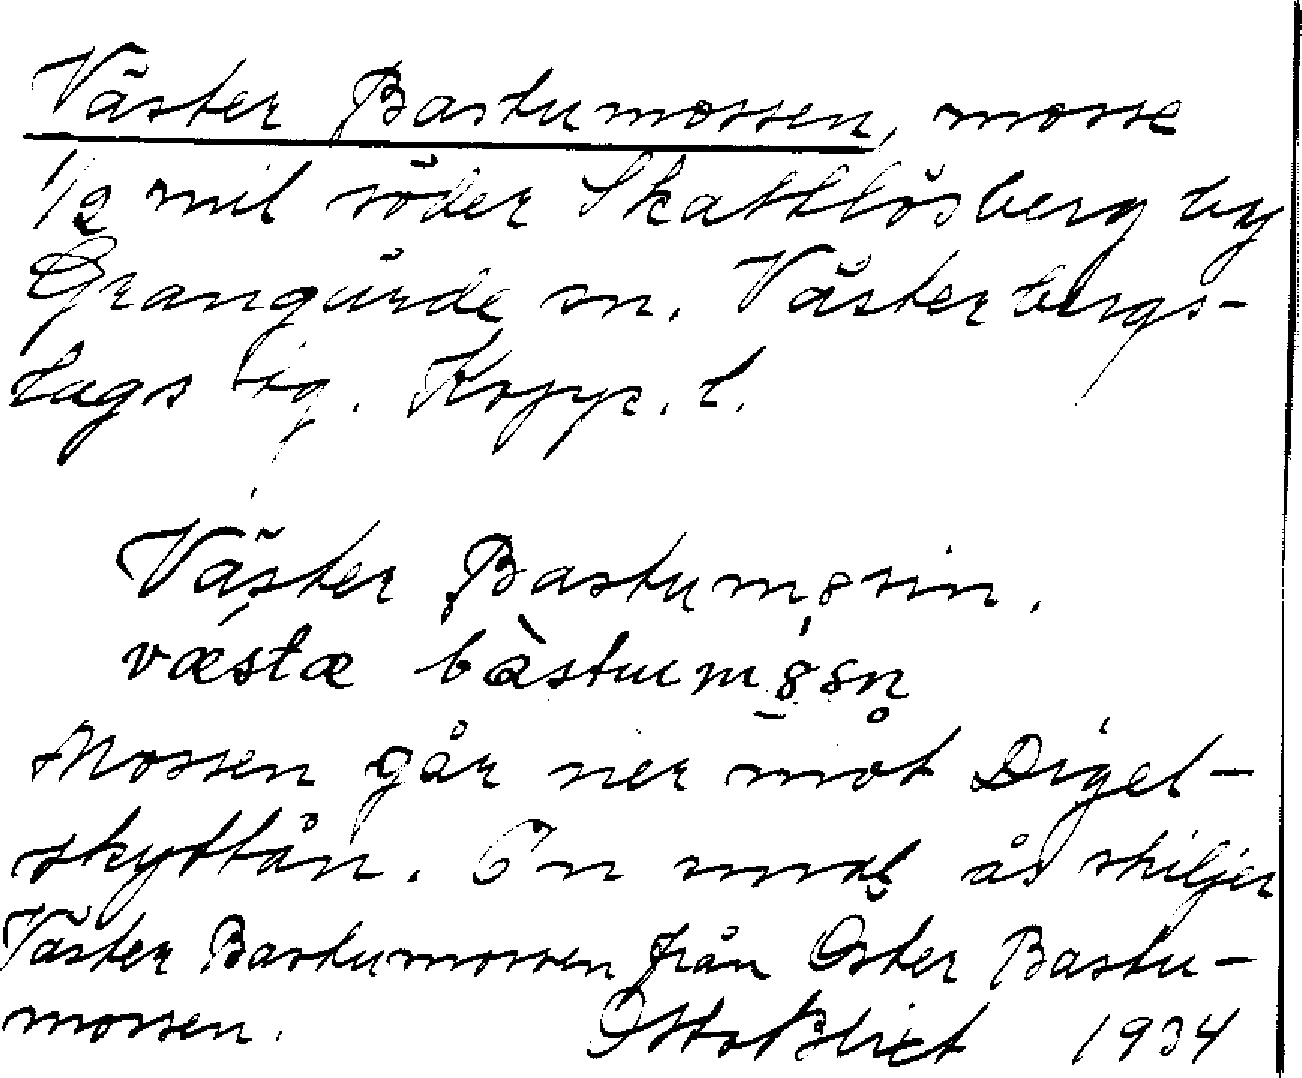 Väster Bastumossen, mosse
1/2 mil söder Skattlösberg by
Grangärde sn. Västerbergs-
lags tg. Kopp. l.
Väster Bastumossin.
væstæ bàstumósn̥
Mossen går ner mot Digel-
skyttån. En smal ås skiljer
Väster Bastumossen från Öster Bastu-
mossen. Otto Blixt 1934